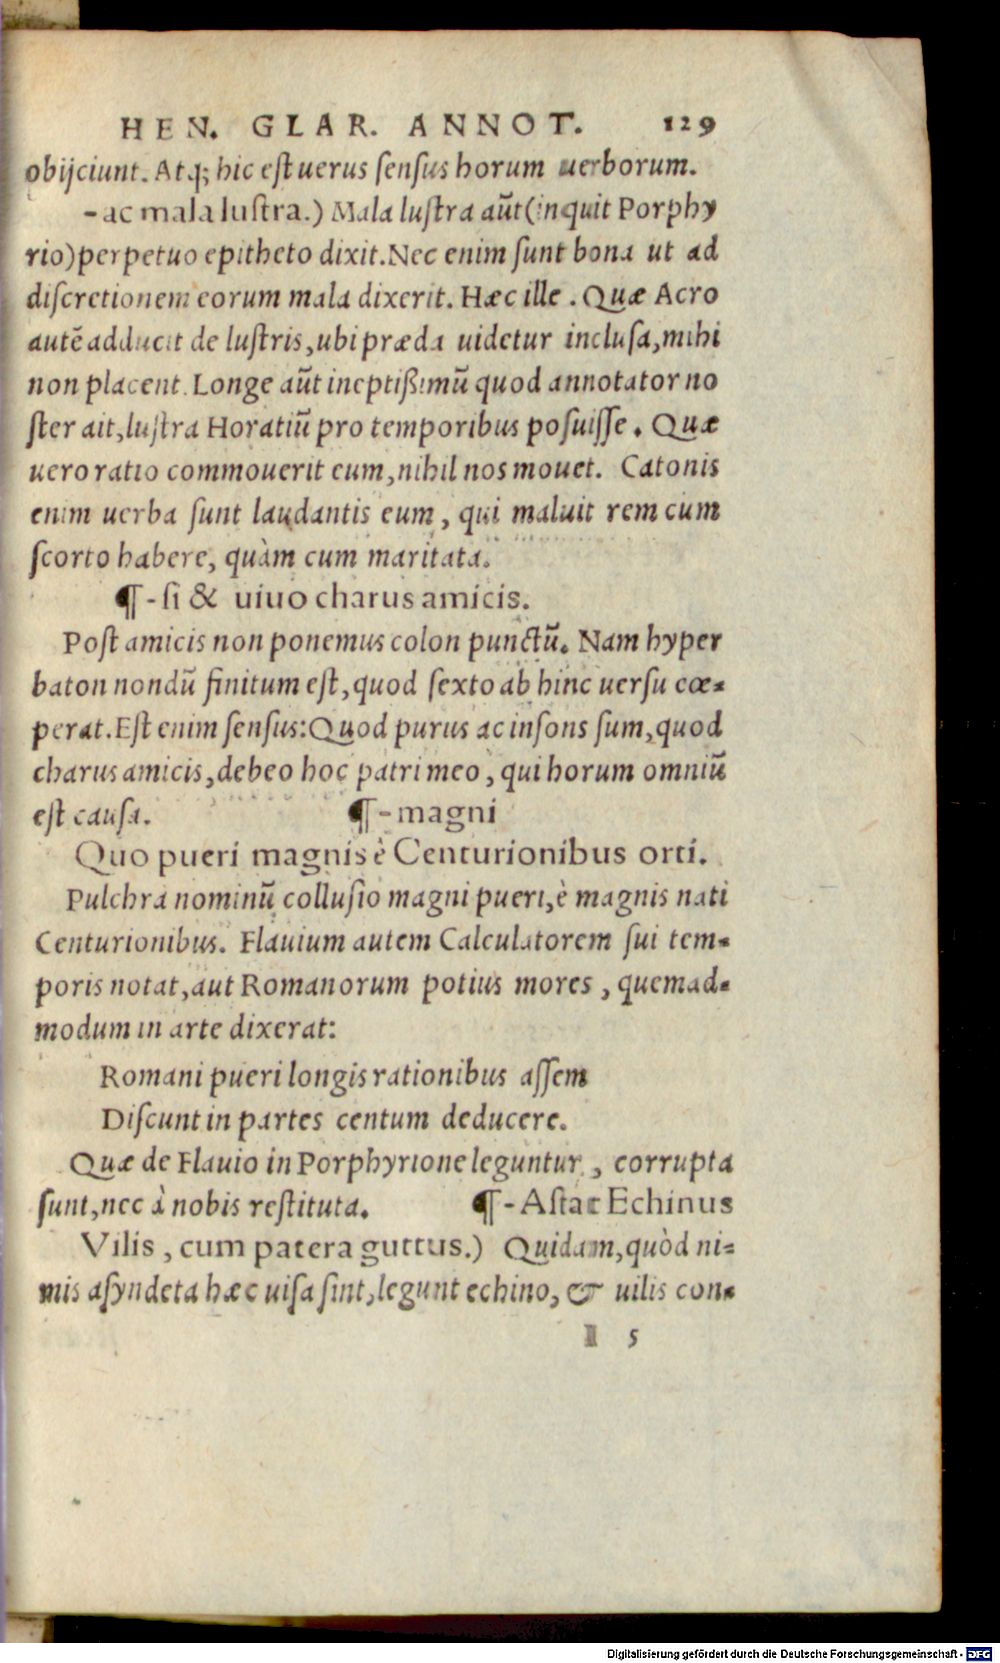 HEN. GLAR. ANNOT. 129
obijciunt. Atq; hic est uerus sensus horum uerborum.
-ac mala lustra.) Mala lustra aūt (inquit Porphy
rio) perpetuo epitheto dixit. Nec enim sunt bona ut ad
discretionem eorum mala dixerit. Hæc ille. Quæ Acro
autē adducit de lustris, ubi præda uidetur inclusa, mihi
non placent. Longe aūt ineptißimū quod annotator no
ster ait, lustra Horatiū pro temporibus posuisse. Quæ
uero ratio commouerit eum, nihil nos mouet. Catonis
enim uerba sunt laudantis eum, qui maluit rem cum
scorto habere, quàm cum maritata.
¶ -si & uiuo charus amicis.
Post amicis non ponemus colon punctū. Nam hyper
baton nondū finitum est, quod sexto ab hinc uersu cœ-
perat. Est enim sensus: Quod purus ac insons sum, quod
charus amicis, debeo hoc patri meo, qui horum omniū
est causa. ¶ -magni
Quo pueri magnis è Centurionibus orti.
Pulchra nominū collusio magni pueri, è magnis nati
Centurionibus. Flauium autem Calculatorem sui tem-
poris notat, aut Romanorum potius mores, quemad-
modum in arte dixerat:
Romani pueri longis rationibus assem
Discunt in partes centum deducere.
Quæ de Flauio in Porphyrione leguntur, corrupta
sunt, nec à nobis restituta. ¶ -Astat Echinus
Vilis, cum patera guttus.) Quidam, quòd ni-
mis asyndeta hæc uisa sint, legunt echino, & uilis con-
I 5
Digitalisierung gefördert durch die Deutsche Forschungsgemeinschaft - DFG